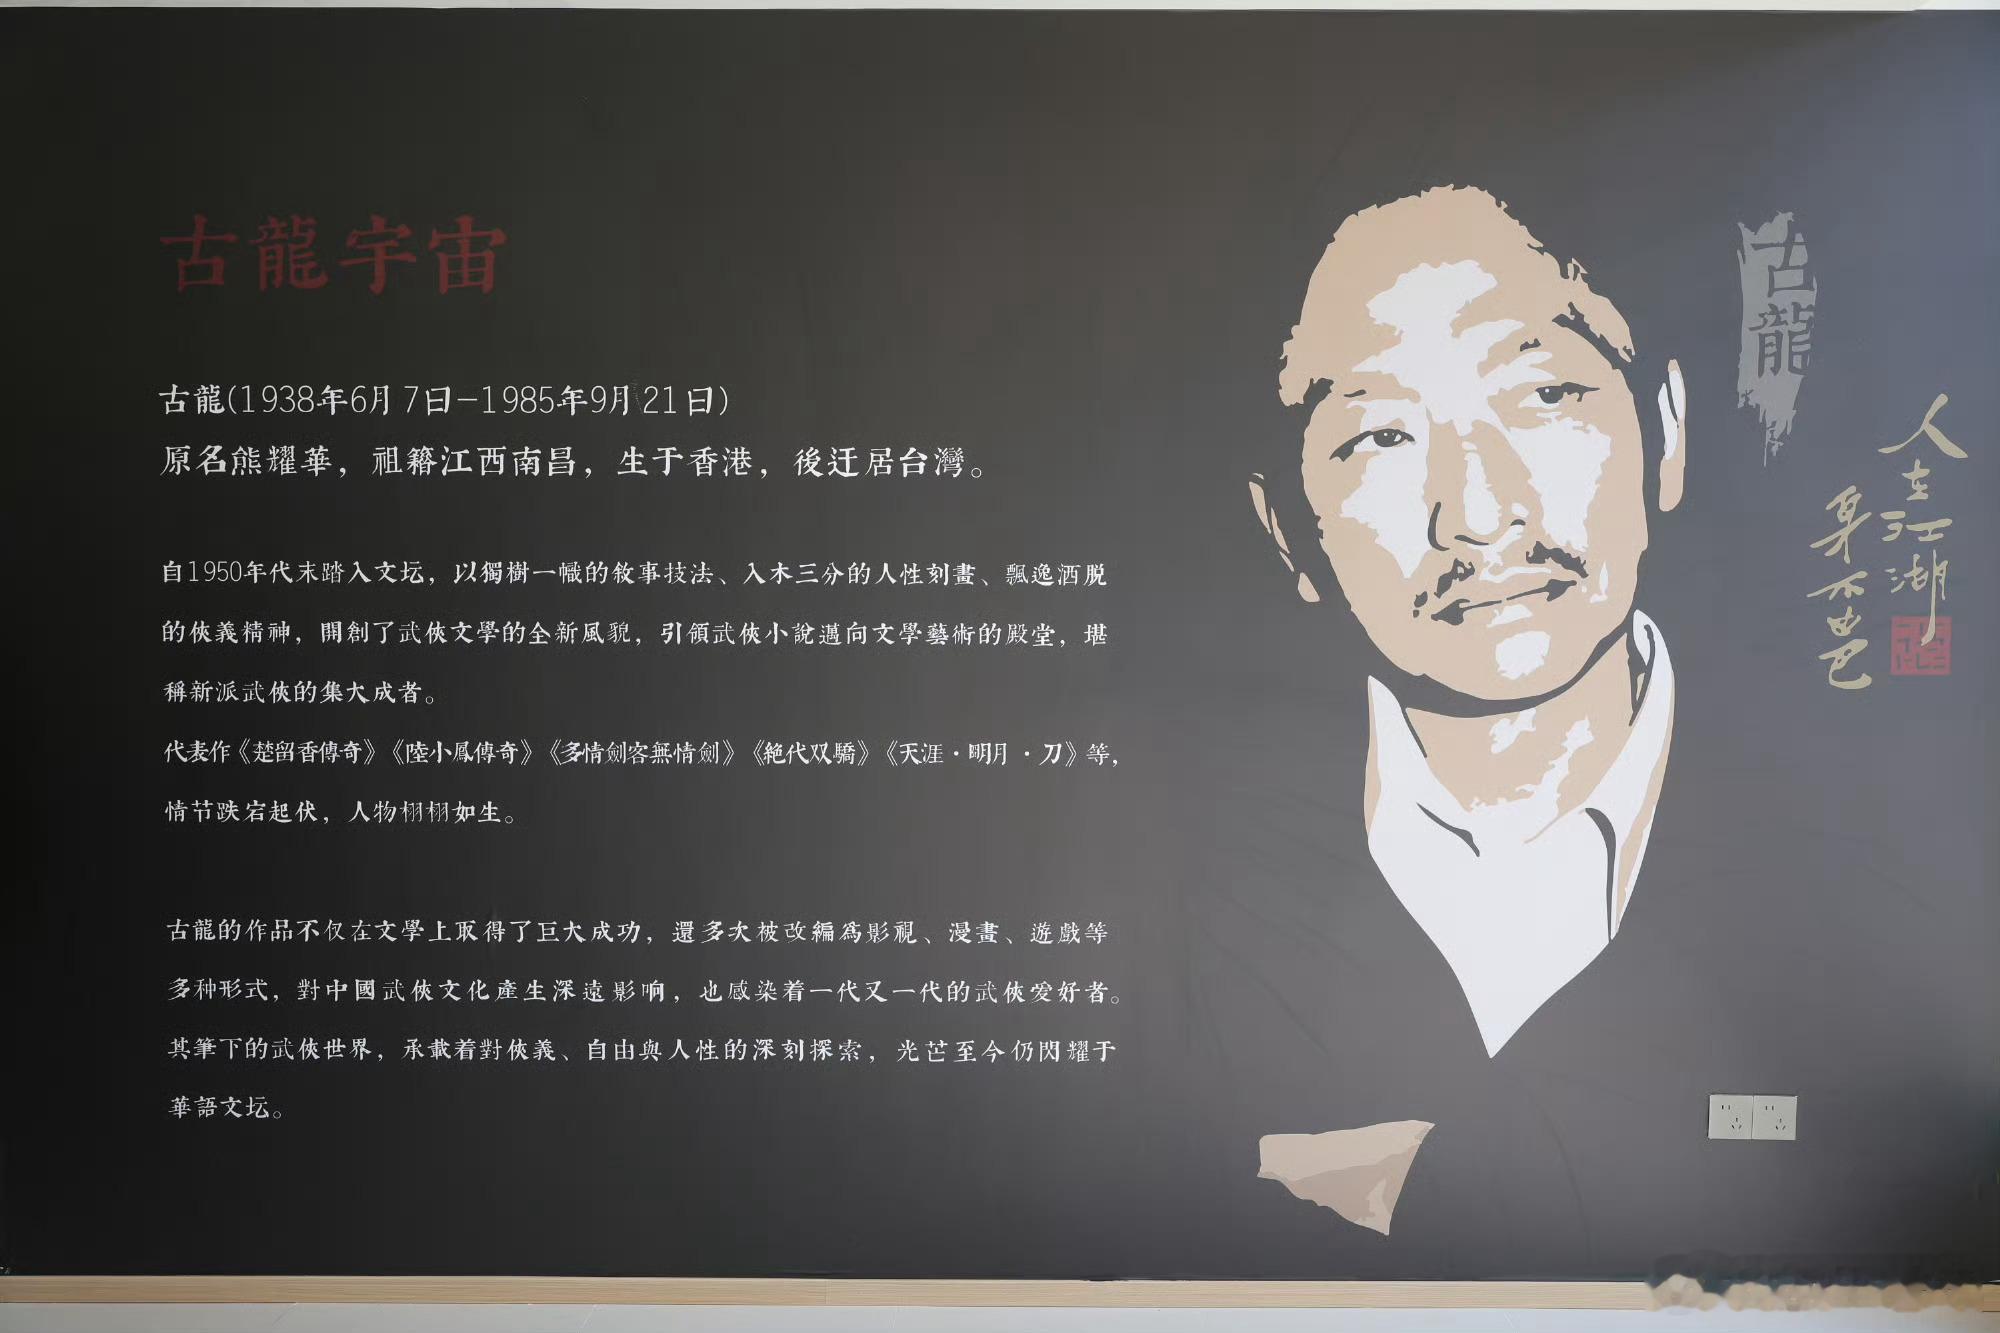 古龍宇宙
古龍(1938年6月7日-1985年9月21日)
原名熊耀華，祖籍江西南昌，生于香港，後迁居台灣。
自1950年代末踏入文坛，以獨樹一幟的敘事技法、入木三分的人性刻畫、飄逸洒脫
的俠義精神，開創了武俠文學的全新風貌，引領武俠小說邁向文學藝術的殿堂，堪
稱新派武俠的集大成者。
代表作《楚留香傳奇》《陸小鳳傳奇》《多情劍客無情劍》《絕代双驕》《天涯·明月·刀》等，
情节跌宕起伏，人物栩栩如生。
古龍的作品不仅在文學上取得了巨大成功，還多次被改編為影視、漫畫、遊戲等
多种形式，對中國武俠文化產生深遠影响，也感染着一代又一代的武俠愛好者。
其筆下的武俠世界，承載着對俠義、自由與人性的深刻探索，光芒至今仍閃耀于
華語文坛。
古龍
人在江湖
身不由己